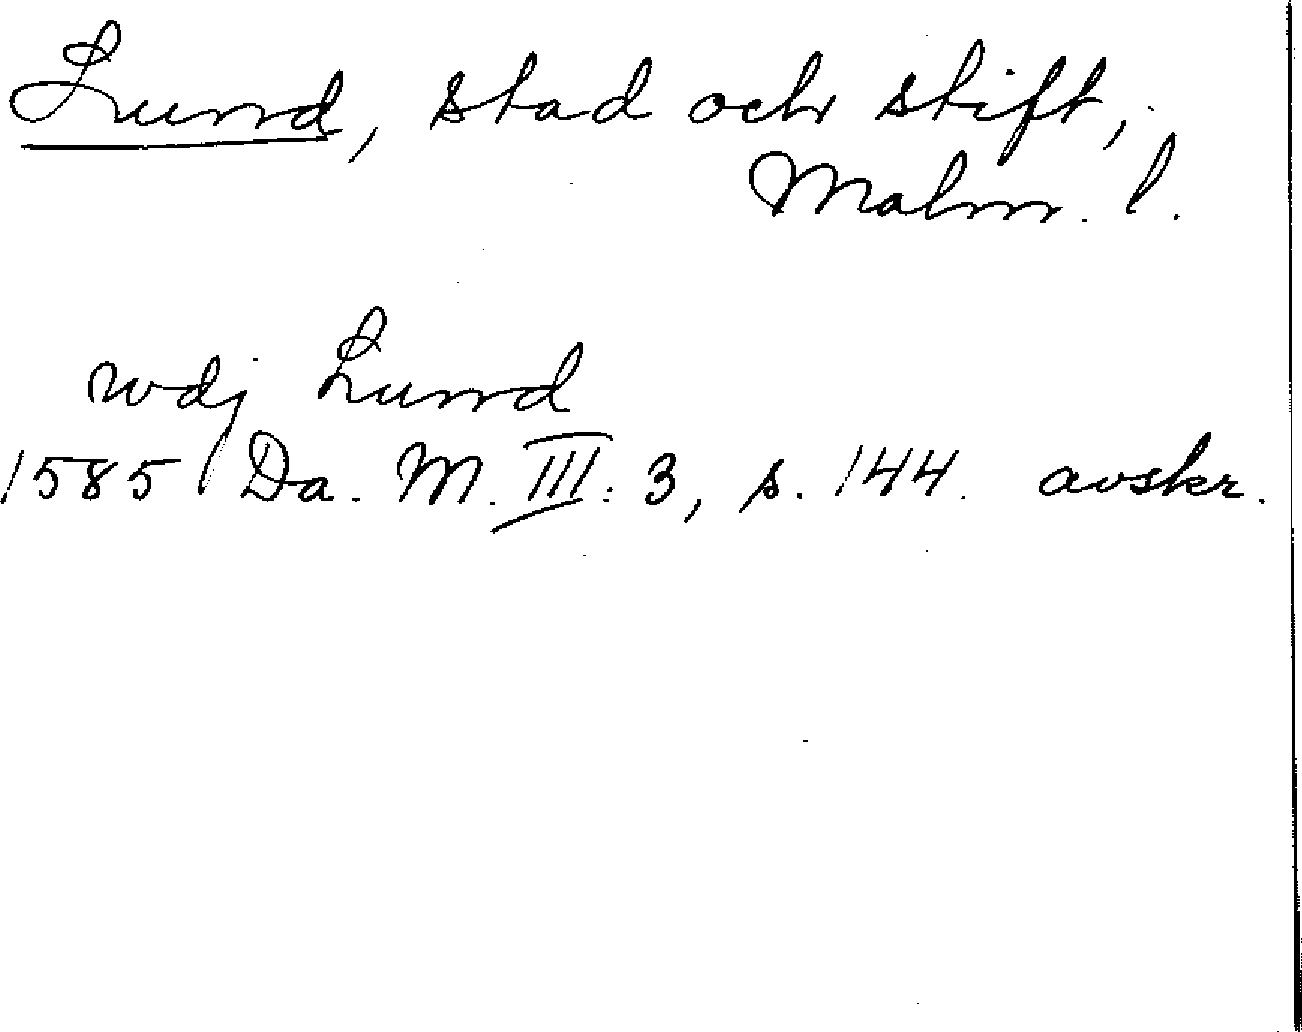 Lund, stad och stift,
Malm. l.
wdj Lund
1585 Da. M. III: 3, s. 144. avskr.